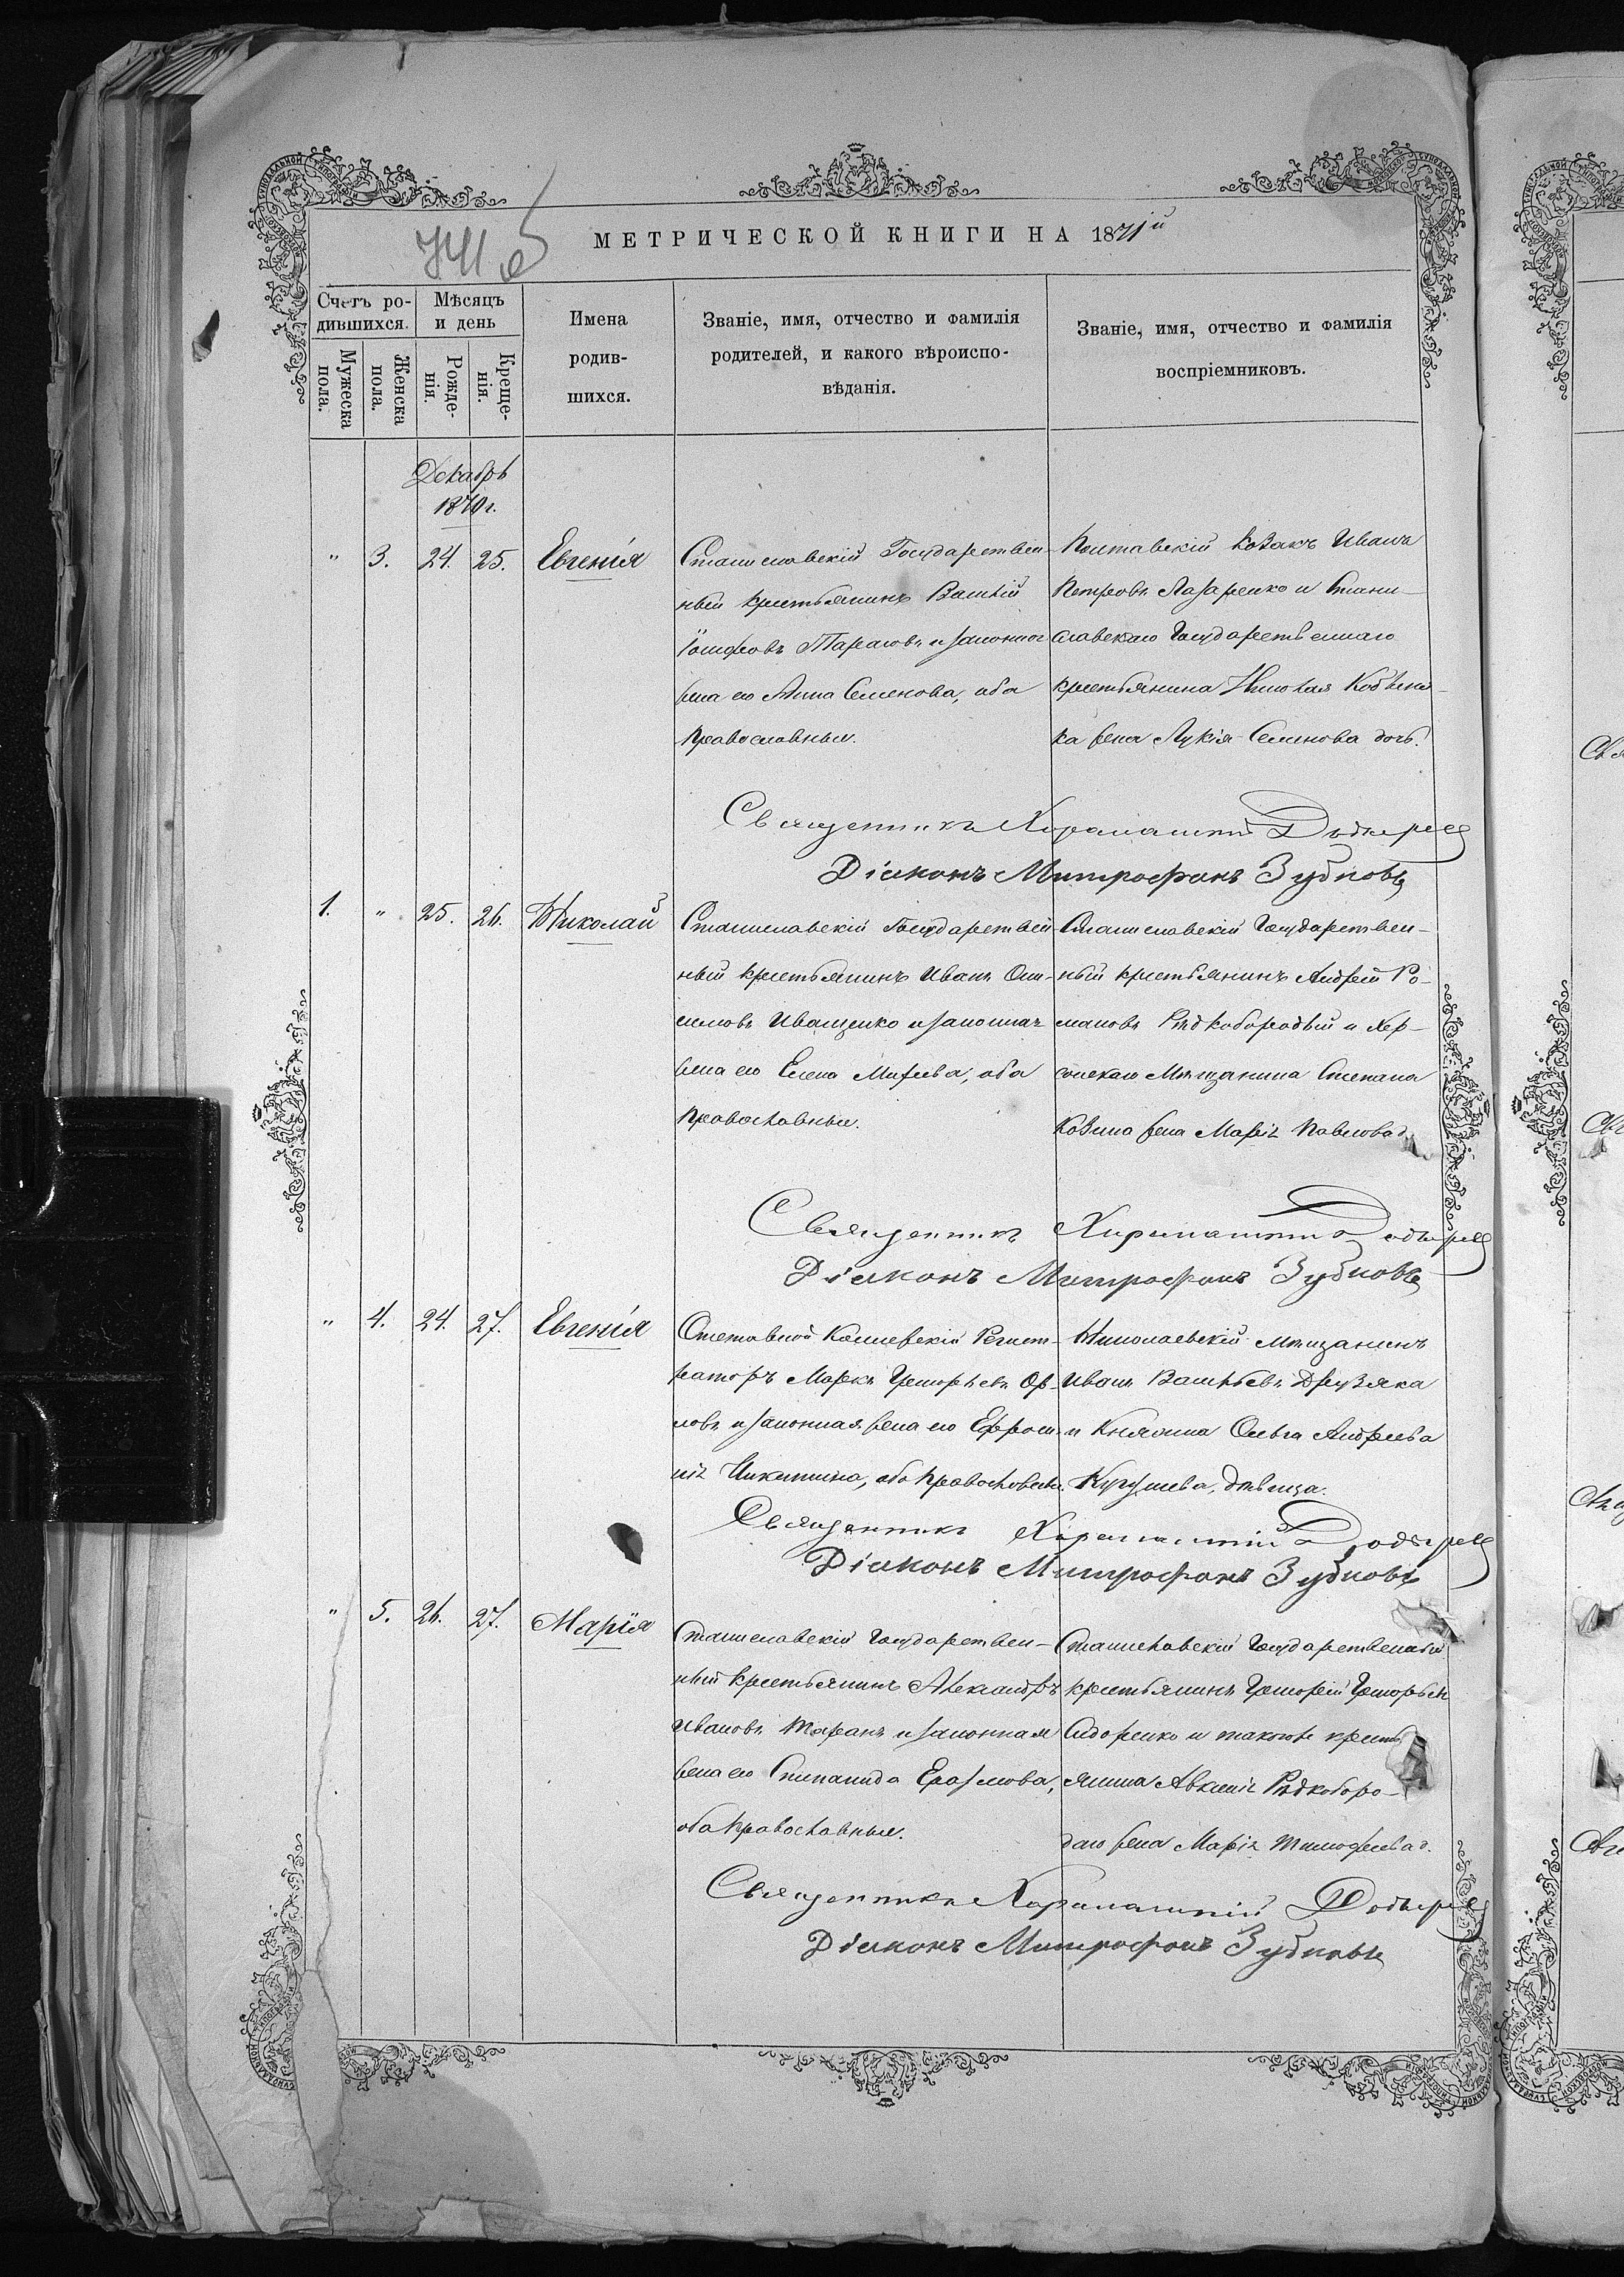 МЕТРИЧЕСКОЙ КНИГИ НА 1871й
Счетъ ро-
дившихся.
Мѣсяцъ
и день
Мужеска
пола.
Женска
пола.
Рожде-
нія.
Креще-
нія.
Имена
родив-
шихся.
Званіе, имя, отчество и фамилія
родителей, и какого вѣроиспо-
вѣданія.
Званіе, имя, отчество и фамилія
воспріемниковъ.
Декабрь
1870 г.
" 3. 24. 25. Евгенія
Станиславскій Государствен-
ный крестьянинъ Василій
Іосифовъ Тарасовъ и законная
жена его Анна Семенова, оба
православные.
Полтавскій козакъ Иванъ
Петровъ Лазаренко и Стани-
славскаго Государственнаго
крестьянина Николая
ка жена Лукія Семенова дочь.
Священникъ Харалампій
Діаконъ Митрофанъ Зубковъ
1. " 25. 26. Николай
Станиславскій Государствен-
ный крестьянинъ Иванъ Они-
симовъ Иващенко и законная
жена его Елена Мифеева, оба
православные.
Станиславскій Государствен-
ный крестьянинъ Андрей Ро-
мановъ Рѣдкобородый и Хер-
сонскаго Мѣщанина Степана
Козина жена Марія Павлова д.
Священникъ Харалампій
Діаконъ Митрофанъ Зубковъ
" 4. 24. 27. Евгенія
Отставной Коллежскій Регист-
раторъ Маркъ Григорьевъ Ор-
ловъ и законная жена его Ефроси-
нія Никитина, оба православные.
Николаевскій мѣщанинъ
Иванъ Васильевъ Друзяка
и Княжна Ольга Андреева
Кугушева, дѣвица.
Священникъ Харалампій
Діаконъ Митрофанъ Зубковъ
" 5. 26. 27. Марія
Станиславскій Государствен-
ный крестьянинъ Александръ
Ивановъ Таранъ и законная
жена его Степанида Еразмова,
оба православные.
Станиславскій Государственный
крестьянинъ Григорій Григорьев
Сидоренко и таковаго кресть
янина Авксентія Рѣдкоборо-
даго жена Марія Тимофеева д.
Священникъ Харалампій
Діаконъ Митрофанъ Зубковъ